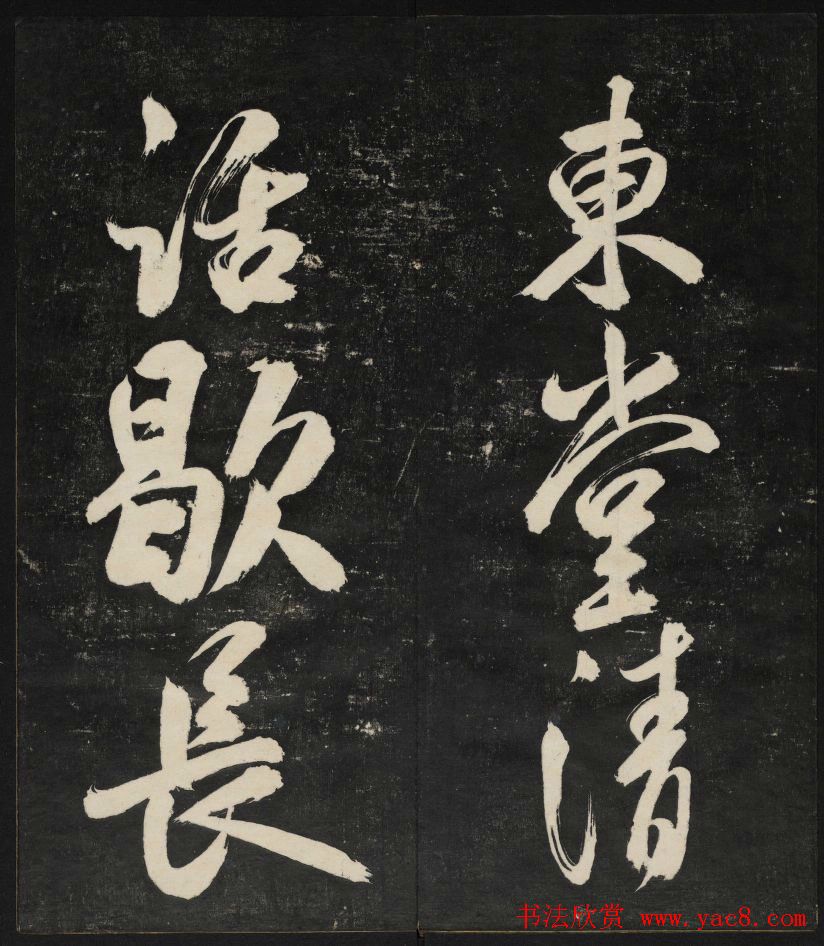 東堂清
話歇長
书法欣赏 www.yac8.com